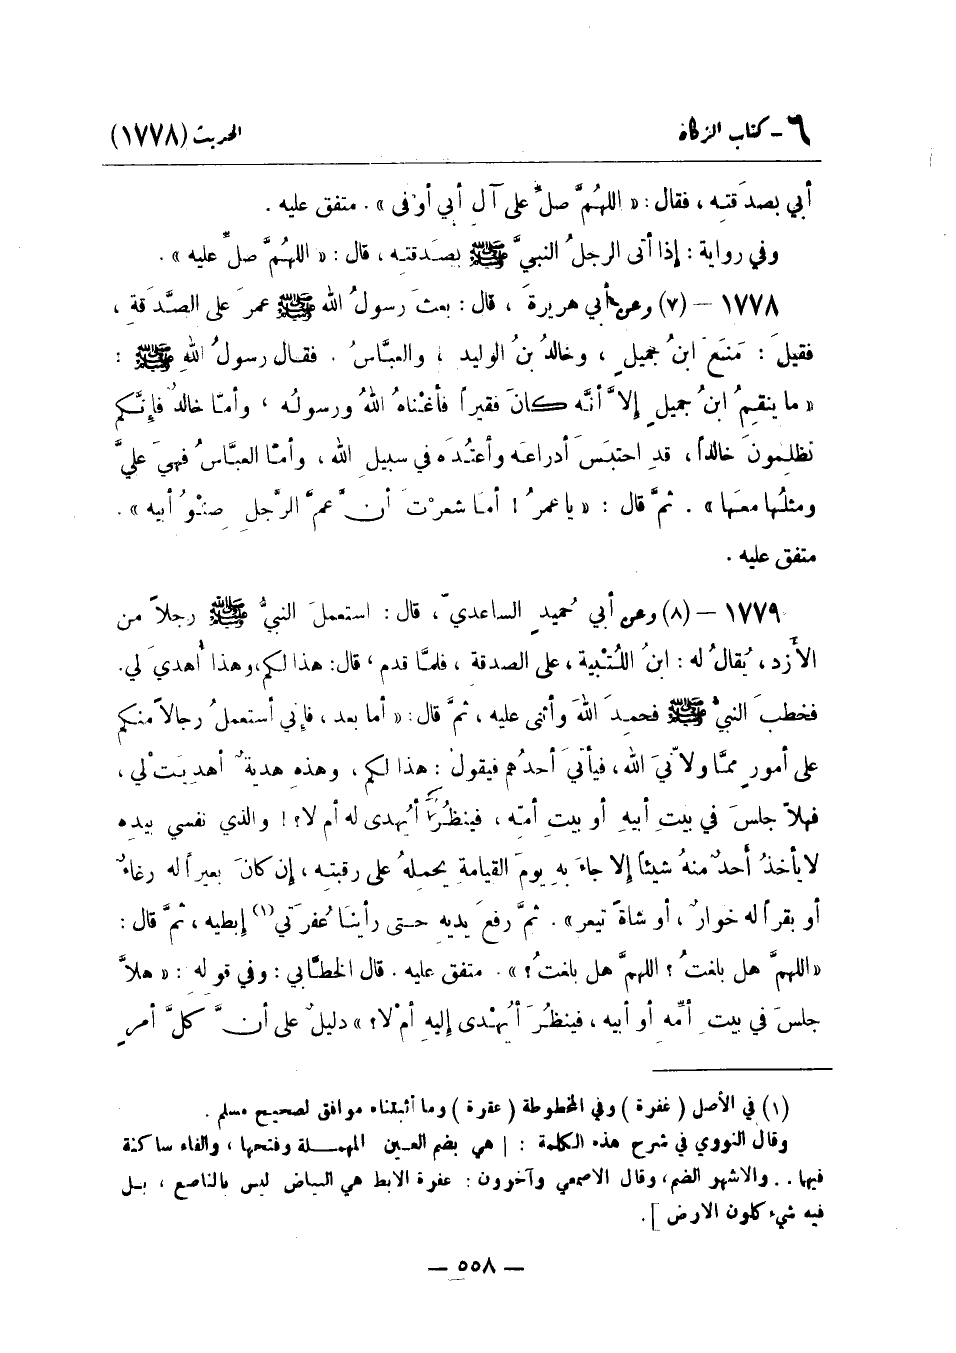 ٦ - كتاب الزكاة
الحديث (١٧٧٨)
أبي بصدَقتِه، فقال: « اللهُمَّ صلِّ على آلِ أبي أوْفى ». متفق عليه.
وفي رواية: إذا أتى الرجلُ النبيَّ ﷺ بصَدقتِه، قال: « اللهُمَّ صلِّ عليه ».
١٧٧٨ – (٧) وعن أبي هريرةَ، قال: بعثَ رسولُ الله ﷺ عمرَ على الصَّدَقةِ،
فقيلَ: مَنَعَ ابنُ جميلٍ، وخالدُ بنُ الوليد، والعبَّاسُ. فقال رسولُ اللهِ ﷺ:
« ما ينقِمُ ابنُ جميلٍ إلاَّ أنَّه كانَ فقيراً فأغْناهُ اللهُ ورسولُه، وأمَّا خالدٌ فإِنَّكم
تظلِمونَ خالداً، قدِ احتبَسَ أدراعَه وأعتُدَه في سبيلِ الله، وأمَّا العبَّاسُ فهيَ عليَّ
ومثلُها معَها ». ثمَّ قال: « يا عمرُ! أمَا شعرْتَ أنَّ عمَّ الرَّجلِ صِنْوُ أبيه ».
متفق عليه.
١٧٧٩ – (٨) وعن أبي حُميدٍ الساعدي، قال: استعملَ النبيُّ ﷺ رجلاً من
الأَزد، يُقالُ له: ابنُ اللُّتْبية، على الصدقة، فلمَّا قدم، قال: هذا لكم، وهذا أُهديَ لي.
فخطبَ النبيُّ ﷺ فحمِدَ اللهَ وأثنى عليه، ثمَّ قال: « أما بعد، فإِني أستعملُ رجالاً منكم
على أمورٍ ممَّا ولاَّنيَ الله، فيأتيَ أحدُهم فيقولُ: هذا لكم، وهذهِ هديةٌ أهديَتْ لي،
فهلاَّ جلسَ في بيتِ أبيهِ أو بيتِ أمِّه، فينظُرَ أيُهدى له أم لا؟! والذي نفسي بيده
لا يأخذُ أحدٌ منهُ شيئاً إلا جاءَ بهِ يومَ القيامةِ يحمِلهُ على رقبتِه، إن كانَ بعيراً له رغاءٌ
أو بقراً له خوارٌ، أو شاةً تيعر ». ثمَّ رفعَ يديهِ حتى رأينا عُفرَتي(١) إبطيه، ثمَّ قال:
« اللهمَّ هل بلغتُ؟ اللهمَّ هل بلغتُ؟ ». متفق عليه. قال الخطَّابي: وفي قوله: « هلاَّ
جلسَ في بيتِ أمِّه أو أبيه، فينظُرَ أيُهْدى إليهِ أمْ لا؟ » دليلٌ على أنَّ كلَّ أمرٍ
(١) في الأصل (غفرة) وفي المخطوطة (عقرة) وما أثبتناه موافق لصحيح مسلم.
وقال النووي في شرح هذه الكلمة: [هي بضم العين المهملة وفتحها، والفاء ساكنة
فيها.. والاشهر الضم، وقال الاصمعي وآخرون: عفرة الابط هي البياض ليس بالناصع، بل
فيه شيء كلون الارض].
– ٥٥٨ –